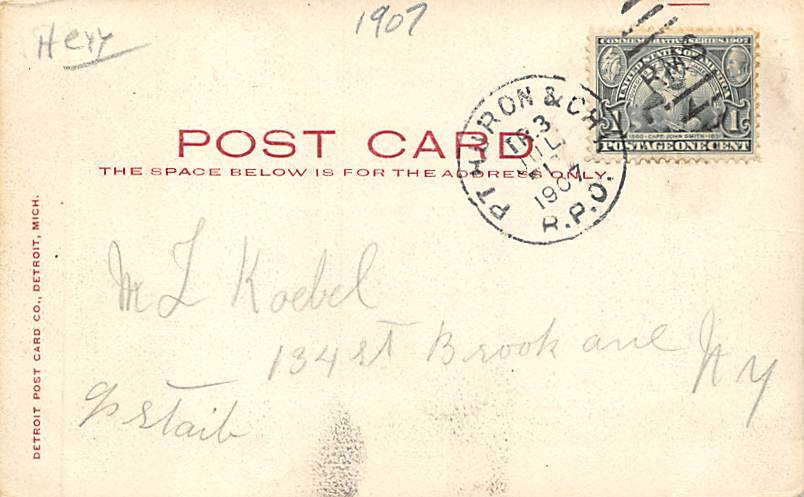 1907
COMMEMORATIVE SERIES 1907
UNITED STATES OF AMERICA
R.M.S.
1580 · CAPT. JOHN SMITH · 1631
1 1
POSTAGE ONE CENT
PT. HURON & CHI.
TR. 3
JUL
1907
R.P.O.
POST CARD
THE SPACE BELOW IS FOR THE ADDRESS ONLY.
M L Koebel
134 st Brook ave
N Y
DETROIT POST CARD CO., DETROIT, MICH.